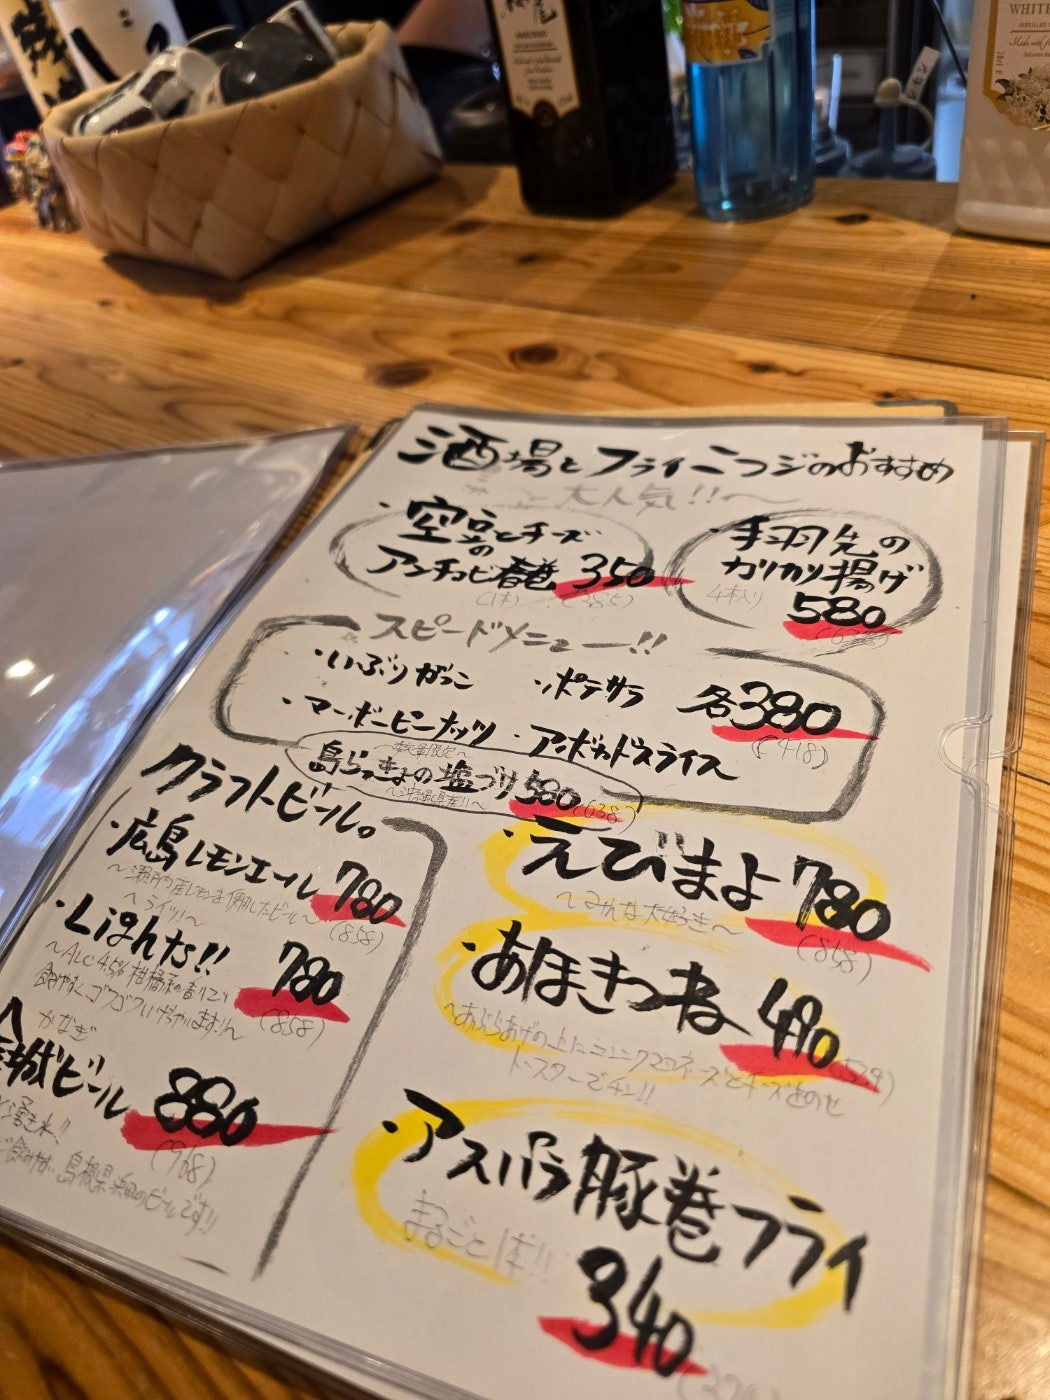 酒場とフライニコジのおすすめ
大人気!!〜
・空豆とチーズ
の
アンチョビ春巻 350
(1本) (385)
・手羽先の
カリカリ揚げ
4本入り 580
スピードメニュー!!
・いぶりがっこ
・ポテサラ
各380
(418)
・マーボーピーナッツ
・アボカドスライス
〜数量限定〜
島らっきょの塩づけ 580 (638)
〜沖縄県産!!〜
クラフトビール。
・広島レモンエール 780
〜瀬戸内産レモンを使用したビール〜
(858)
〜ライツ!!〜
・Lighた!! 780
〜ALC4.5% 柑橘系の香りで
飲みやすくゴクゴクいけちゃいます!!〜
(858)
かなぎ
金城ビール 880
湧き水!!
(968)
島根県浜田のビールです!!
・えびまよ 780
〜みんな大好き〜
(858)
・あほきつね 490
〜あぶらあげの上にコーンクマヨネーズとチーズをのせ
(539)
トースターでチン!!
・アスパラ豚巻フライ
まるごと1本!!
340